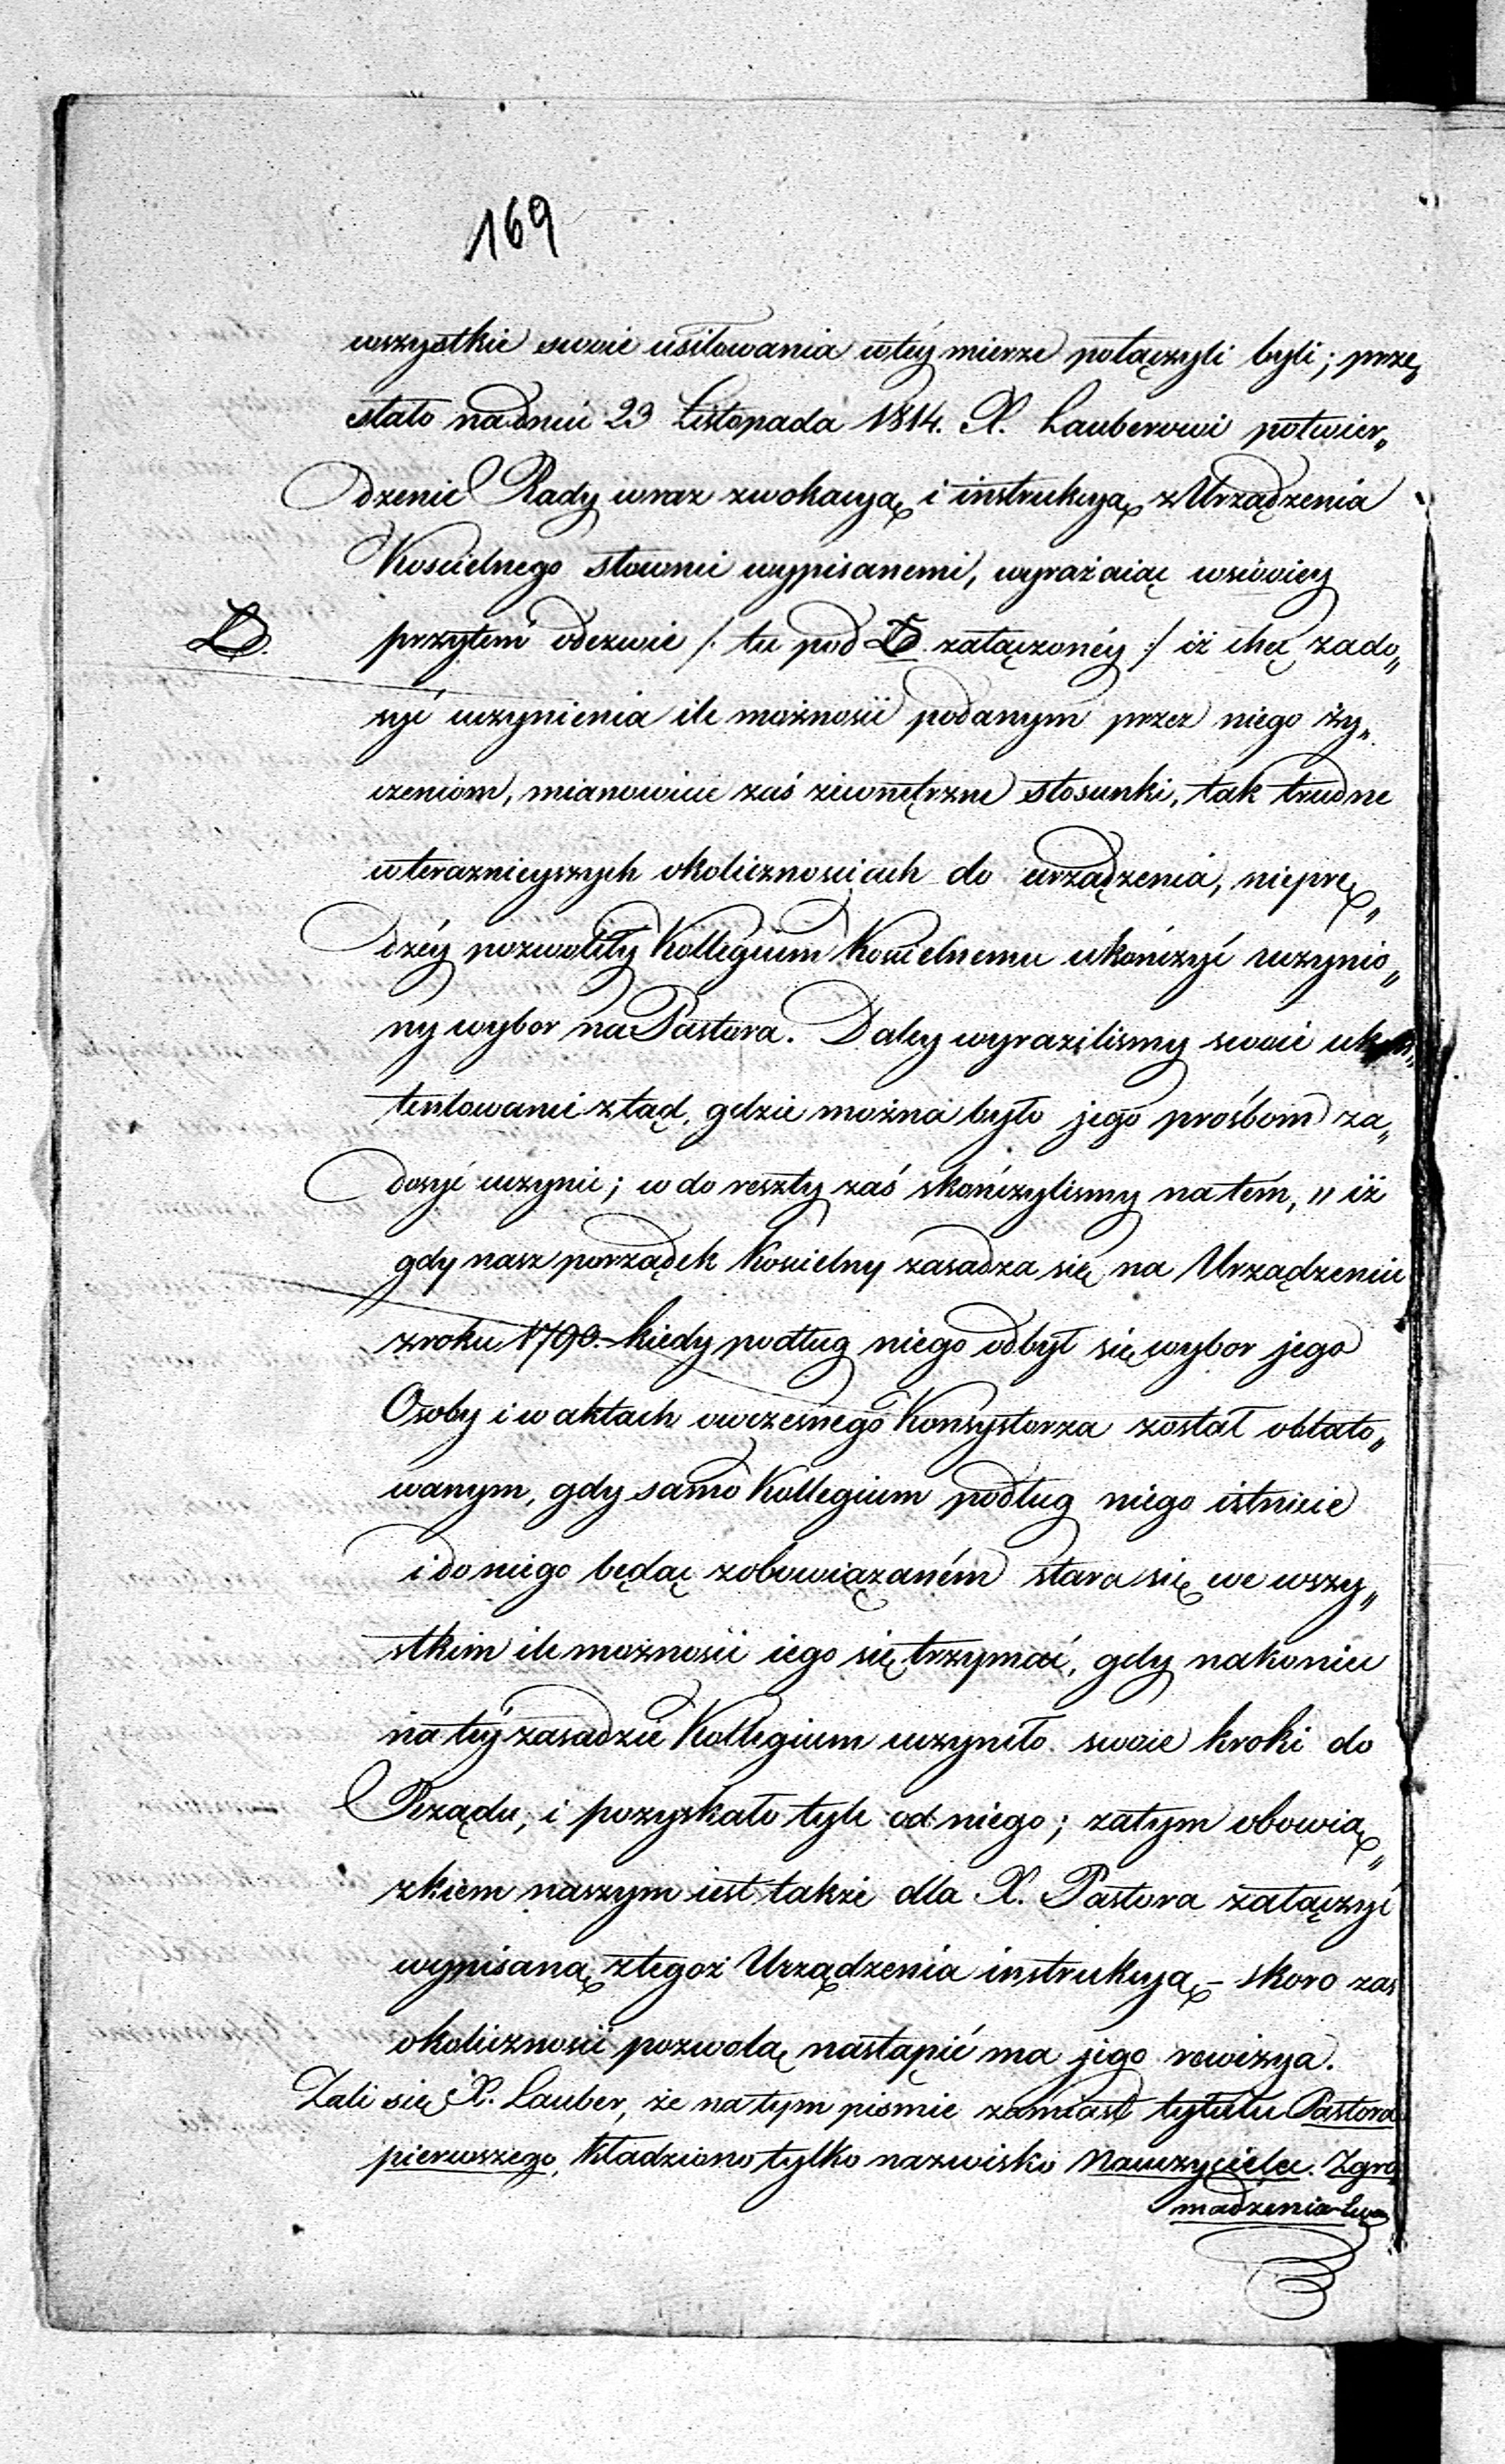 169
wszystkie swoie usiłowania w téy mierze połączyli byli; prze„
stało na dniu 23 Listopada 1814. X. Lauberowi potwier„
dzenie Rady wraz z wokacyą i instrukcyą z Urządzenia
Kościelnego słownie wypisanemi, wyrażaiąc w swoiey
D. przytem odezwie /: tu pod D. załączonéy :/ iż chęć zado„
syć uczynienia ile możności podanym przez niego ży„
czeniom, mianowicie zaś zewnętrzne stosunki, tak trudne
w teraznieyszych okolicznościach do urządzenia, nieprę„
dzéy pozwoliły Kollegium Kościelnemu ukończyć uczynio„
ny wybor na Pastora. Daley wyraziliśmy swoie ukon„
tentowanie ztąd, gdzie można było jego prośbom za„
dosyć uczynić; w do reszty zaś skończyliśmy na tém, „ iż
gdy nasz porządek Kościelny zasadza się na Urządzeniu
z roku 1790. kiedy podług niego odbył się wybor jego
Osoby i w aktach owczesnego Konsystorza został oblato„
wanym, gdy samo Kollegium podług niego istnieie
i do niego będąc zobowiązaném stara się we wszy„
stkim ile możności iego się trzymać, gdy nakoniec
na téy zasadzie Kollegium uczyniło swoie kroki do
Rządu, i pozyskało tyle od niego; zatym obowią„
zkiem naszym iest także dla X. Pastora załączyć
wypisaną z tegoż Urządzenia instrukcyą – skoro zaś
okoliczności pozwolą nastąpić ma jego rewizya.
Żali się X. Lauber, że na tym piśmie zamiast tytułu Pastora
pierwszego, kładziono tylko nazwisko Nauczyciela. Zgro
madzenia Ewa